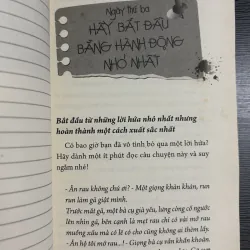 Ngày thứ ba
HÃY BẮT ĐẦU
BẰNG HÀNH ĐỘNG
NHỎ NHẤT
Bắt đầu từ những lời hứa nhỏ nhất nhưng
hoàn thành một cách xuất sắc nhất
Có bao giờ bạn đã vô tình bỏ qua một lời hứa?
Hãy dành một ít phút đọc câu chuyện này và suy
ngẫm nhé!
- Ăn rau không chú ơi? - Một giọng khàn khàn, run
run làm gã giật mình.
Trước mắt gã, một bà cụ già yếu, lưng còng cố ngước
lên nhìn gã, bên cạnh là mẹt rau chỉ có vài mớ rau
muống xấu mà có lẽ có cho cũng không ai thèm lấy.
- Ăn hộ tôi mớ rau...! - Giọng bà cụ vẫn khẩn khoản.